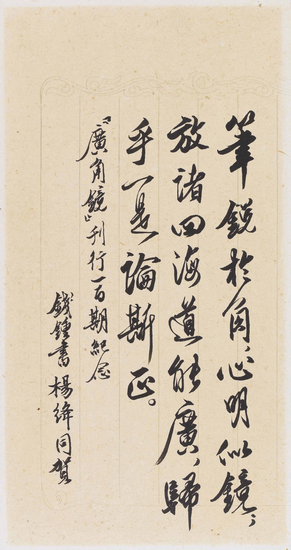 筆銳於角，心明似鏡；
放諸四海道能廣，歸
乎一是論斯正。
「廣角鏡」刊行一百期紀念
錢鍾書 楊絳同賀